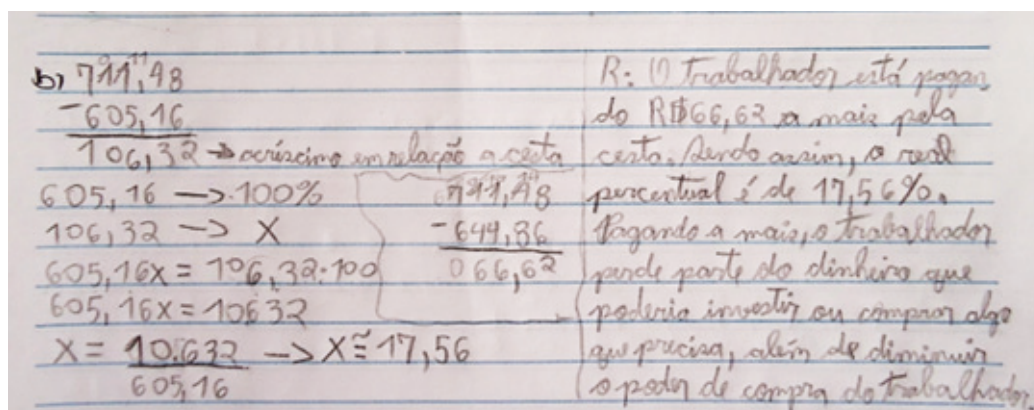 b) 711,48
-605,16
106,32 → acríscimo em relação a cesta
605,16 → 100%
106,32 → X
605,16x = 106,32·100
605,16x = 10632
X = 10.632 → X ≅ 17,56
605,16
711,48
-644,86
066,62
R: O trabalhador está pagan
do R$66,62 a mais pela
cesta. Sendo assim, o real
percentual é de 17,56%.
Pagando a mais, o trabalhador
perde parte do dinheiro que
poderia investir ou comprar algo
que precisa, além de diminuir
o poder de compra do trabalhador.